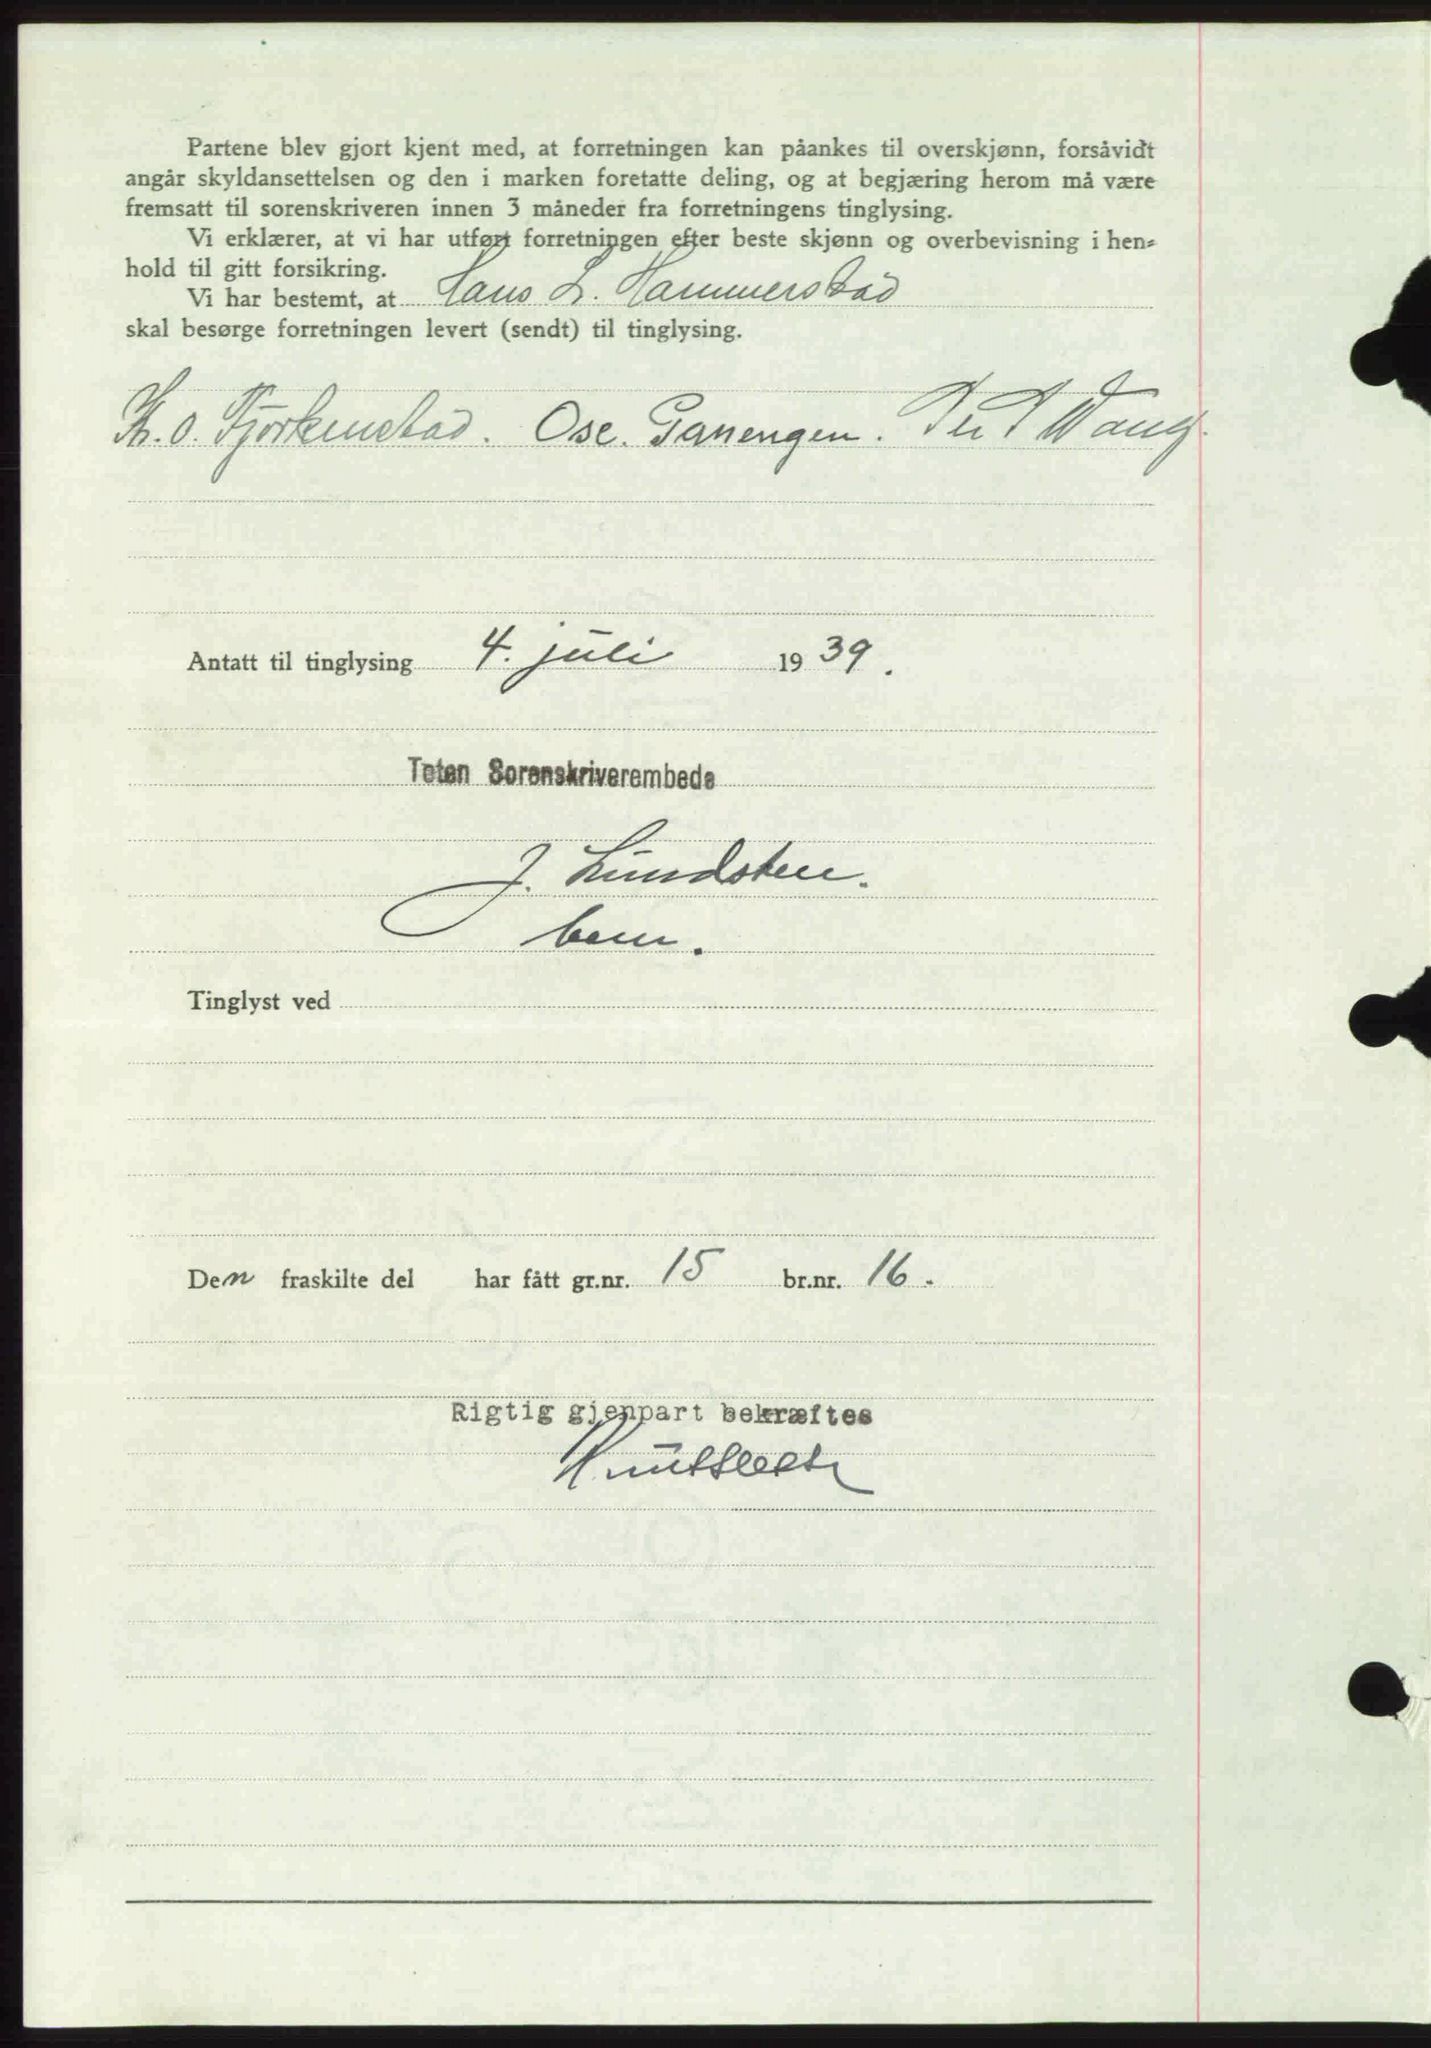 Partene blev gjort kjent med, at forretningen kan påankes til overskjønn, forsåvidt
angår skyldansettelsen og den i marken foretatte deling, og at begjæring herom må være
fremsatt til sorenskriveren innen 3 måneder fra forretningens tinglysing.
Vi erklærer, at vi har utført forretningen efter beste skjønn og overbevisning i hen-
hold til gitt forsikring.
Vi har bestemt, at Hans L. Hammerstad
skal besørge forretningen levert (sendt) til tinglysing.
Kr. O. Fjørkenstad. Osc. Garsengen. Wang.
Antatt til tinglysing 4. juli 1939.
Toten Sorenskriverembede
J. Lundsten.
bem.
Tinglyst ved
Den fraskilte del har fått gr.nr. 15 br.nr. 16.
Rigtig gjenpart bekræftes